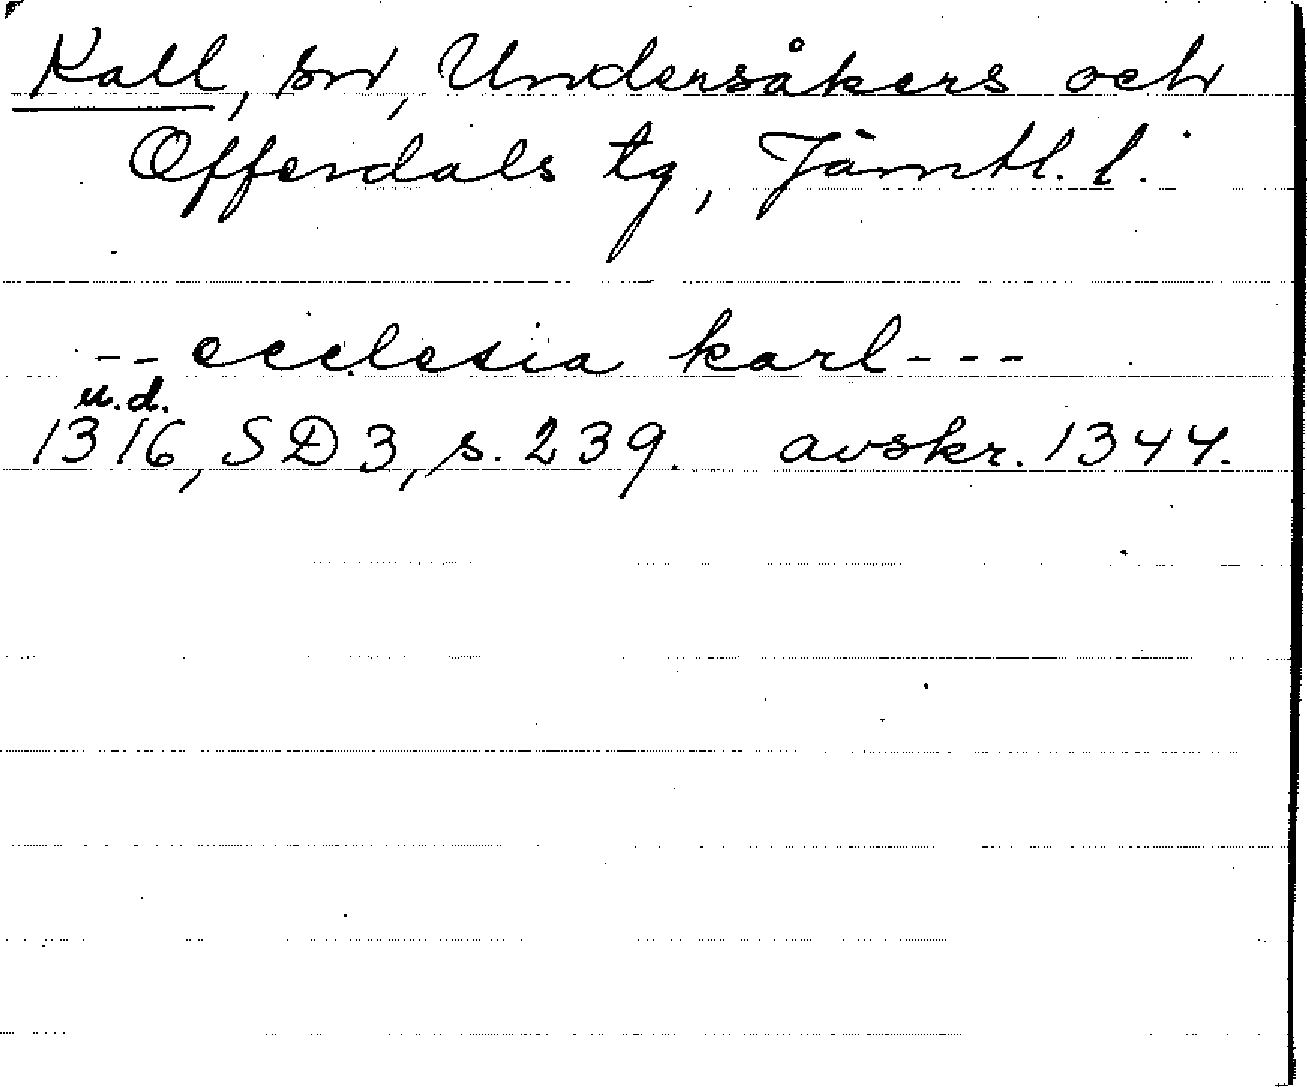 Kall, sn, Undersåkers och
Offerdals tg, Jämtl. l.
-- ecclesia karl ---
u.d.
1316, SD 3, s. 239. avskr. 1344.